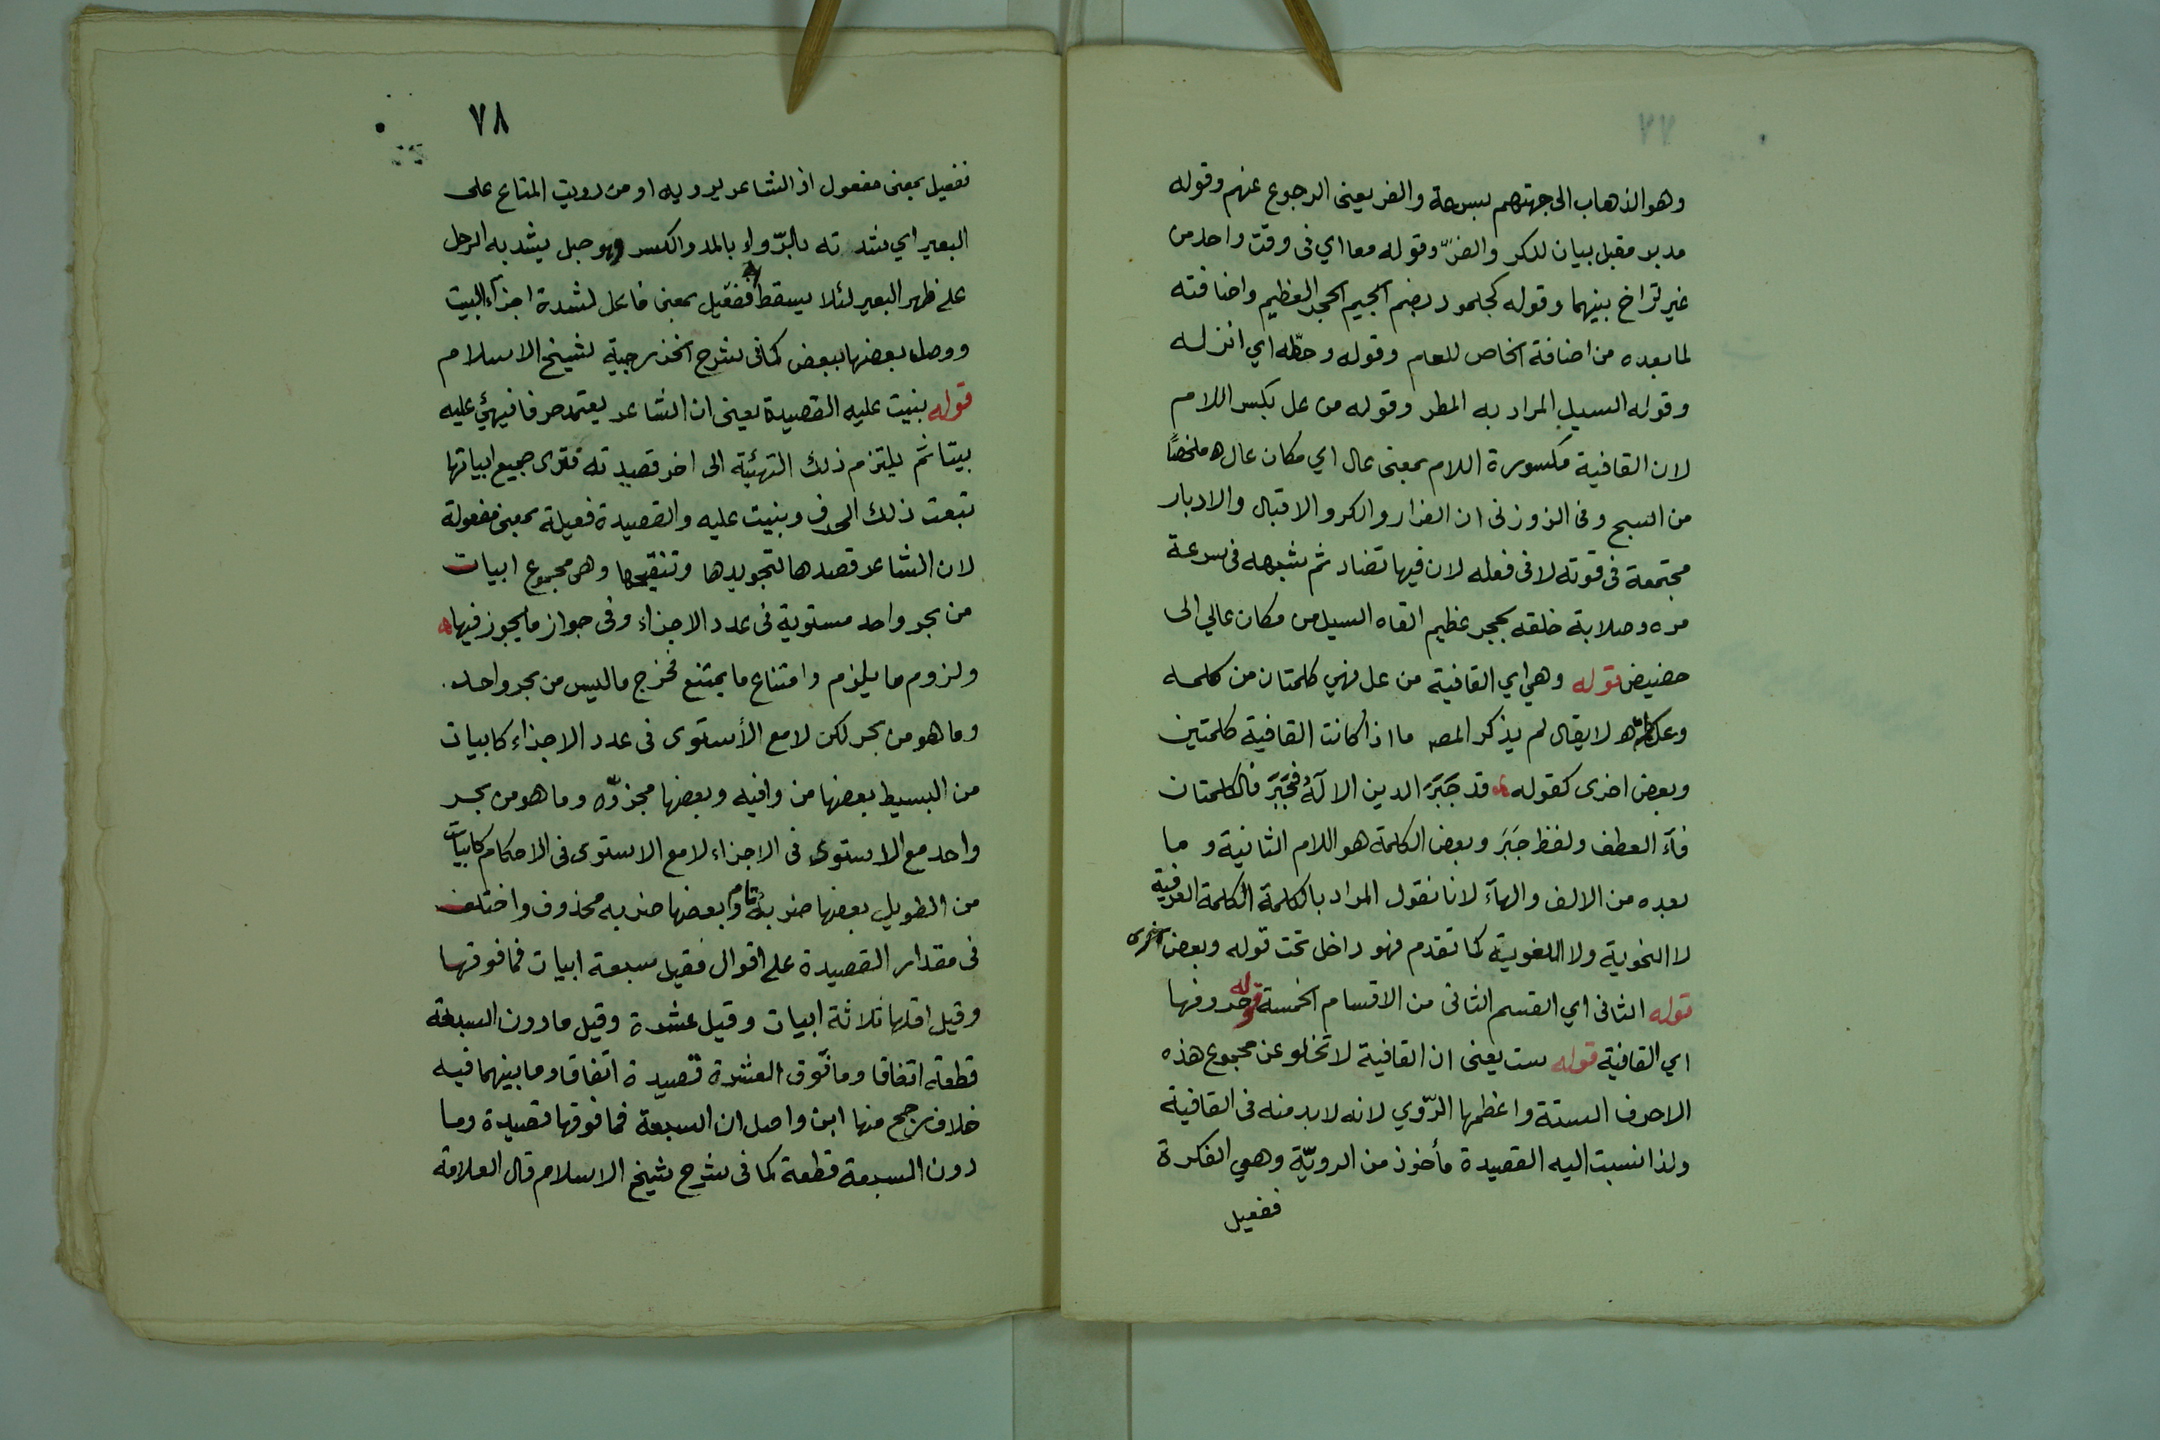 وهو الذهاب الى جهتهم بسرعة والفر يعنى الرجوع عنهم وقوله
مدبر مقبل بيان للكر والفرّ وقوله معا اي فى وقت واحد من
غير تراخ بينهما وقوله كجلمود بضم الجيم الحجر العظيم واضافته
لما بعده من اضافة الخاص للعام وقوله وحطّه اي انزله
وقوله السيل المراد به المطر وقوله من عل بكسر اللام
لان القافية مكسورة اللام بمعنى عال اي مكان عال اه ملخصًا
من السبع وفى الزوزنى ان الفرار والكر والاقبال والادبار
مجتمعة فى قوته لا فى فعله لان فيها تضاد ثم شبهه فى سرعة
مره وصلابة خلقه بحجر عظيم القاه السيل من مكان عالي الى
حضيض قوله وهي اي القافية من عل فهي كلمتان من كلمه
وعل كلمة اه لا يقال لم يذكر المصـ ما اذا كانت القافية كلمتين
وبعض اخرى كقوله قد جَبَرَ الدين الالٓهُ فجَبَرَ فالكلمتان
فآء العطف ولفظ جَبَرَ وبعض الكلمة هو اللام الثانية وما
بعده من الالف والهآء لانا نقول المراد بالكلمة الكلمة العرفية
لا النحوية ولا اللغوية كما تقدم فهو داخل تحت قوله وبعض اخرى
قوله الثانى اي القسم الثانى من الاقسام الخمسة قوله حروفها
اي القافية قوله ست يعنى ان القافية لا تخلو عن مجموع هذه
الاحرف الستة واعظمها الرّوي لانه لا بد منه فى القافية
ولذا نسبت اليه القصيدة مأخوذ من الرويّة وهي الفكرة
ففعيل
٧٨
ففعيل بمعنى مفعول اذ الشاعر يرويه او من رويت المتاع على
البعير اي شددته بالرّواء بالمد والكسر وهو حبل يشد به الرحل
على ظهر البعير لئلا يسقط ففعيل بمعنى فاعل لشدة اجزآء البيت
ووصل بعضها ببعض كما فى شرح الخزرجية لشيخ الاسلام
قوله بنيت عليه القصيدة يعنى ان الشاعر يعتمد حرفا فيهئ عليه
بيتا ثم يلتزم ذلك التهيئة الى اخر قصيدته فترى جميع ابياتها
تبعت ذلك الحرف وبنيت عليه والقصيدة فعيلة بمعنى مفعولة
لان الشاعر قصدها لتجويدها وتنقيحها وهى مجموع ابيات
من بحر واحد مستوية فى عدد الاجزاء وفى جواز ما يجوز فيها
ولزوم ما يلزم وامتناع ما يمتنع فخرج ما ليس من بحر واحد.
وما هو من بحر لكن لا مع الأستوى فى عدد الاجزاء كابيات
من البسيط بعضها من وافيه وبعضها مجزوّه وما هو من بحر
واحد مع الاستوى فى الاجزاء لا مع الاستوى فى الاحكام كابيات
من الطويل بعضها ضربه تام وبعضها ضربه محذوف واختلف
فى مقدار القصيدة على اقوال فقيل سبعة ابيات فما فوقها
وقيل اقلها ثلاثة ابيات وقيل عشرة وقيل ما دون السبعة
قطعة اتفاقا وما فوق العشرة قصيدة اتفاقا وما بينهما فيه
خلاف رجح منها ابن واصل ان السبعة فما فوقها قصيدة وما
دون السبعة قطعة كما فى شرح شيخ الاسلام قال العلامة